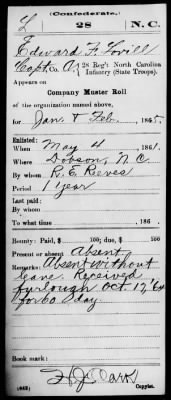 (Confederate.)
L 28 N.C.
Edward F. Lovill
Capt Co. A, 28 Reg't North Carolina
Infantry (State Troops).
Appears on
Company Muster Roll
of the organization named above,
for Jan & Feb, 1865.
Enlisted:
When May 4, 1861.
Where Dobson, N.C.
By whom R. E. Reeves
Period 1 year
Last paid:
By whom
To what time , 186 .
Bounty: Paid, $ 100; due, $ 100
Present or absent Absent
Remarks: Absent without
leave. Received
furlough Oct 17 '64
for 60 day.
Book mark:
(642) Copyist.